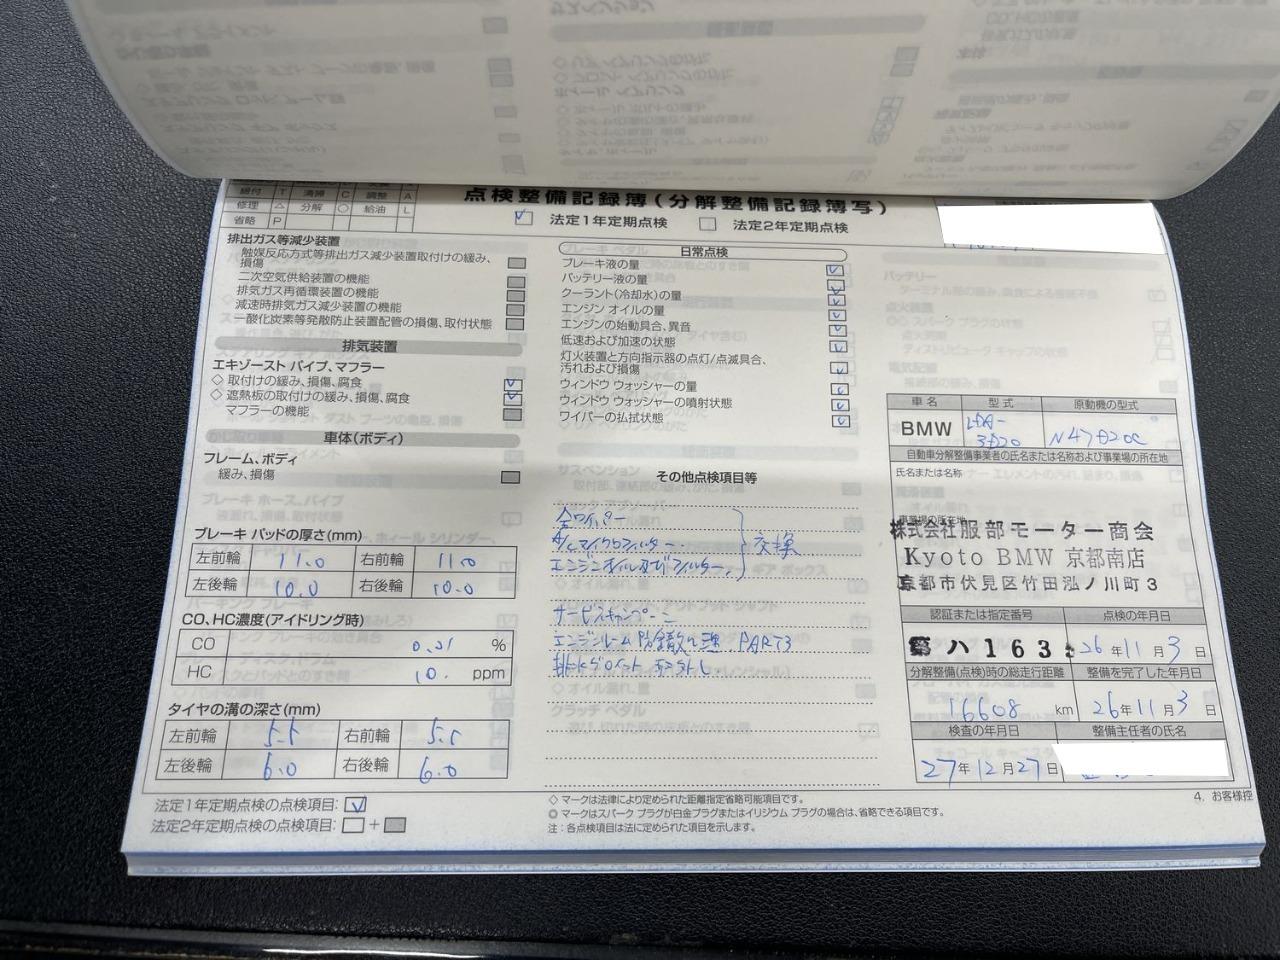 締付 T 清掃 C 調整 A
修理 △ 分解 ○ 給油 L
省略 P
点検整備記録簿(分解整備記録簿写)
法定1年定期点検 法定2年定期点検
排出ガス等減少装置
触媒反応方式等排出ガス減少装置取付けの緩み、
損傷
二次空気供給装置の機能
排気ガス再循環装置の機能
減速時排気ガス減少装置の機能
一酸化炭素等発散防止装置配管の損傷、取付状態
排気装置
エキゾースト パイプ、マフラー
◇ 取付けの緩み、損傷、腐食
◇ 遮熱板の取付けの緩み、損傷、腐食
マフラーの機能
車体(ボディ)
フレーム、ボディ
緩み、損傷
ブレーキ パッドの厚さ(mm)
左前輪 11.0 右前輪 11.0
左後輪 10.0 右後輪 10.0
CO、HC濃度(アイドリング時)
CO 0.01 %
HC 10. ppm
タイヤの溝の深さ(mm)
左前輪 5.5 右前輪 5.5
左後輪 6.0 右後輪 6.0
法定1年定期点検の点検項目:
法定2年定期点検の点検項目: +
日常点検
ブレーキ液の量
バッテリー液の量
クーラント(冷却水)の量
エンジン オイルの量
エンジンの始動具合、異音
低速および加速の状態
灯火装置と方向指示器の点灯/点滅具合、
汚れおよび損傷
ウィンドウ ウォッシャーの量
ウィンドウ ウォッシャーの噴射状態
ワイパーの払拭状態
その他点検項目等
全ワイパー
A/Cマイクロフィルター
エンジンオイル及びフィルター
交換
サービスキャンペーン
エンジンルーム PART3
◇ マークは法律により定められた距離指定省略可能項目です。
◎ マークはスパーク プラグが白金プラグまたはイリジウム プラグの場合は、省略できる項目です。
注:各点検項目は法に定められた項目を示します。
車名 型式 原動機の型式
BMW LDA-3D20 N47D20C
自動車分解整備事業者の氏名または名称および事業場の所在地
氏名または名称
事業場の所在地
株式会社服部モーター商会
Kyoto BMW 京都南店
京都市伏見区竹田泓ノ川町3
認証または指定番号 点検の年月日
ハ163 26年11月3日
分解整備(点検)時の総走行距離 整備を完了した年月日
16608 km 26年11月3日
検査の年月日 整備主任者の氏名
27年12月27日
4. お客様控